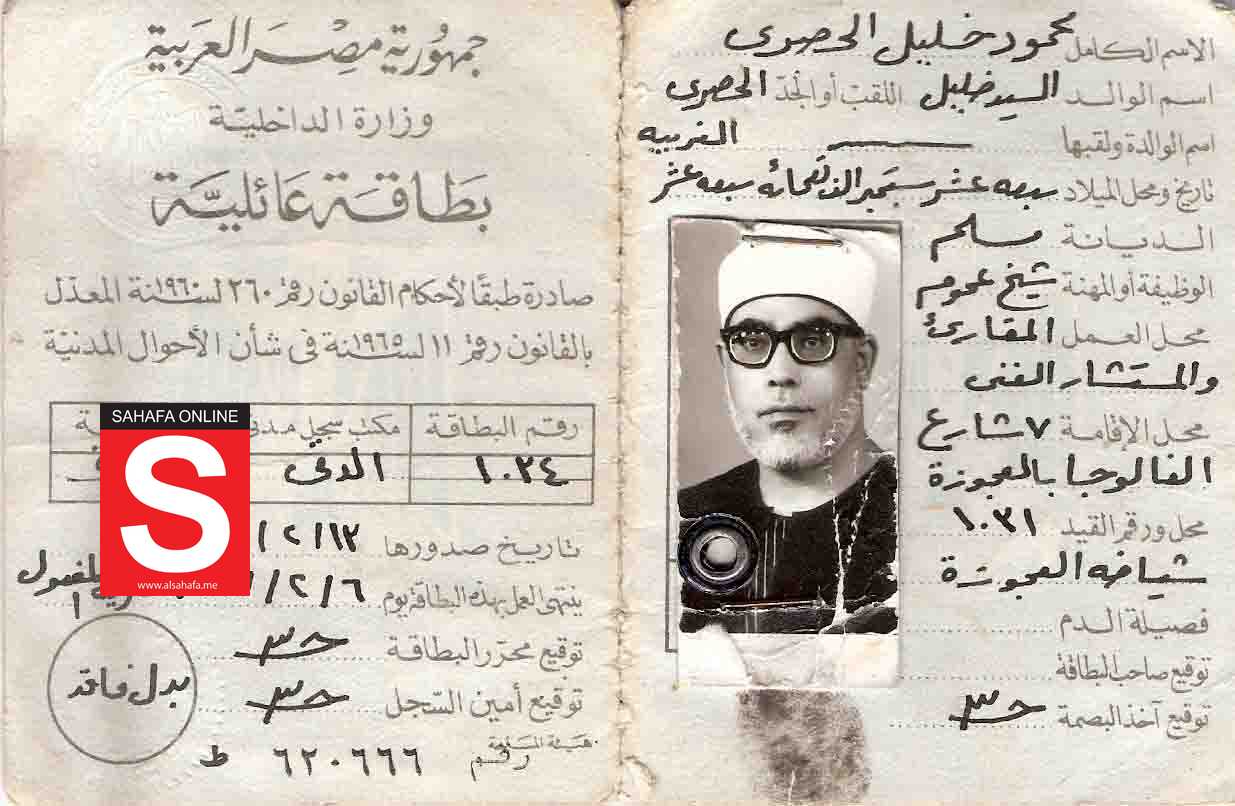 الاسم الكامل محمود خليل الحصرى
اسم الوالد السيد خليل اللقب أو الجد الحصرى
اسم الوالدة ولقبها الغربيه
تاريخ ومحل الميلاد سبعه عشر سبتمبر الف تسعمائه سبعه عشر
الديانة مسلم
الوظيفة أو المهنة شيخ عموم
محل العمل المقارئ
والمستشار الفنى
محل الإقامة ٧ شارع
الفالوجا بالعجوزة
محل ورقم القيد ١٠٣١
شياخه العجوزة
فصيلة الدم
توقيع صاحب البطاقة
توقيع آخذ البصمة
جمهورية مصر العربية
وزارة الداخلية
بطاقة عائلية
صادرة طبقًا لأحكام القانون رقم ٢٦٠ لسنة ١٩٦٠ المعدّل
بالقانون رقم ١١ لسنة ١٩٦٥ فى شأن الأحوال المدنيّة
رقم البطاقة مكتب سجل مدنى
١٠٣٤ الدقى
تاريخ صدورها ١٣/٢/
ينتهى العمل بهذه البطاقة يوم ٦/٢/
توقيع محرّر البطاقة
توقيع أمين السّجل
بدل فاقد
رقم ٦٢٠٦٦٦ ط
SAHAFA ONLINE
S
www.alsahafa.me